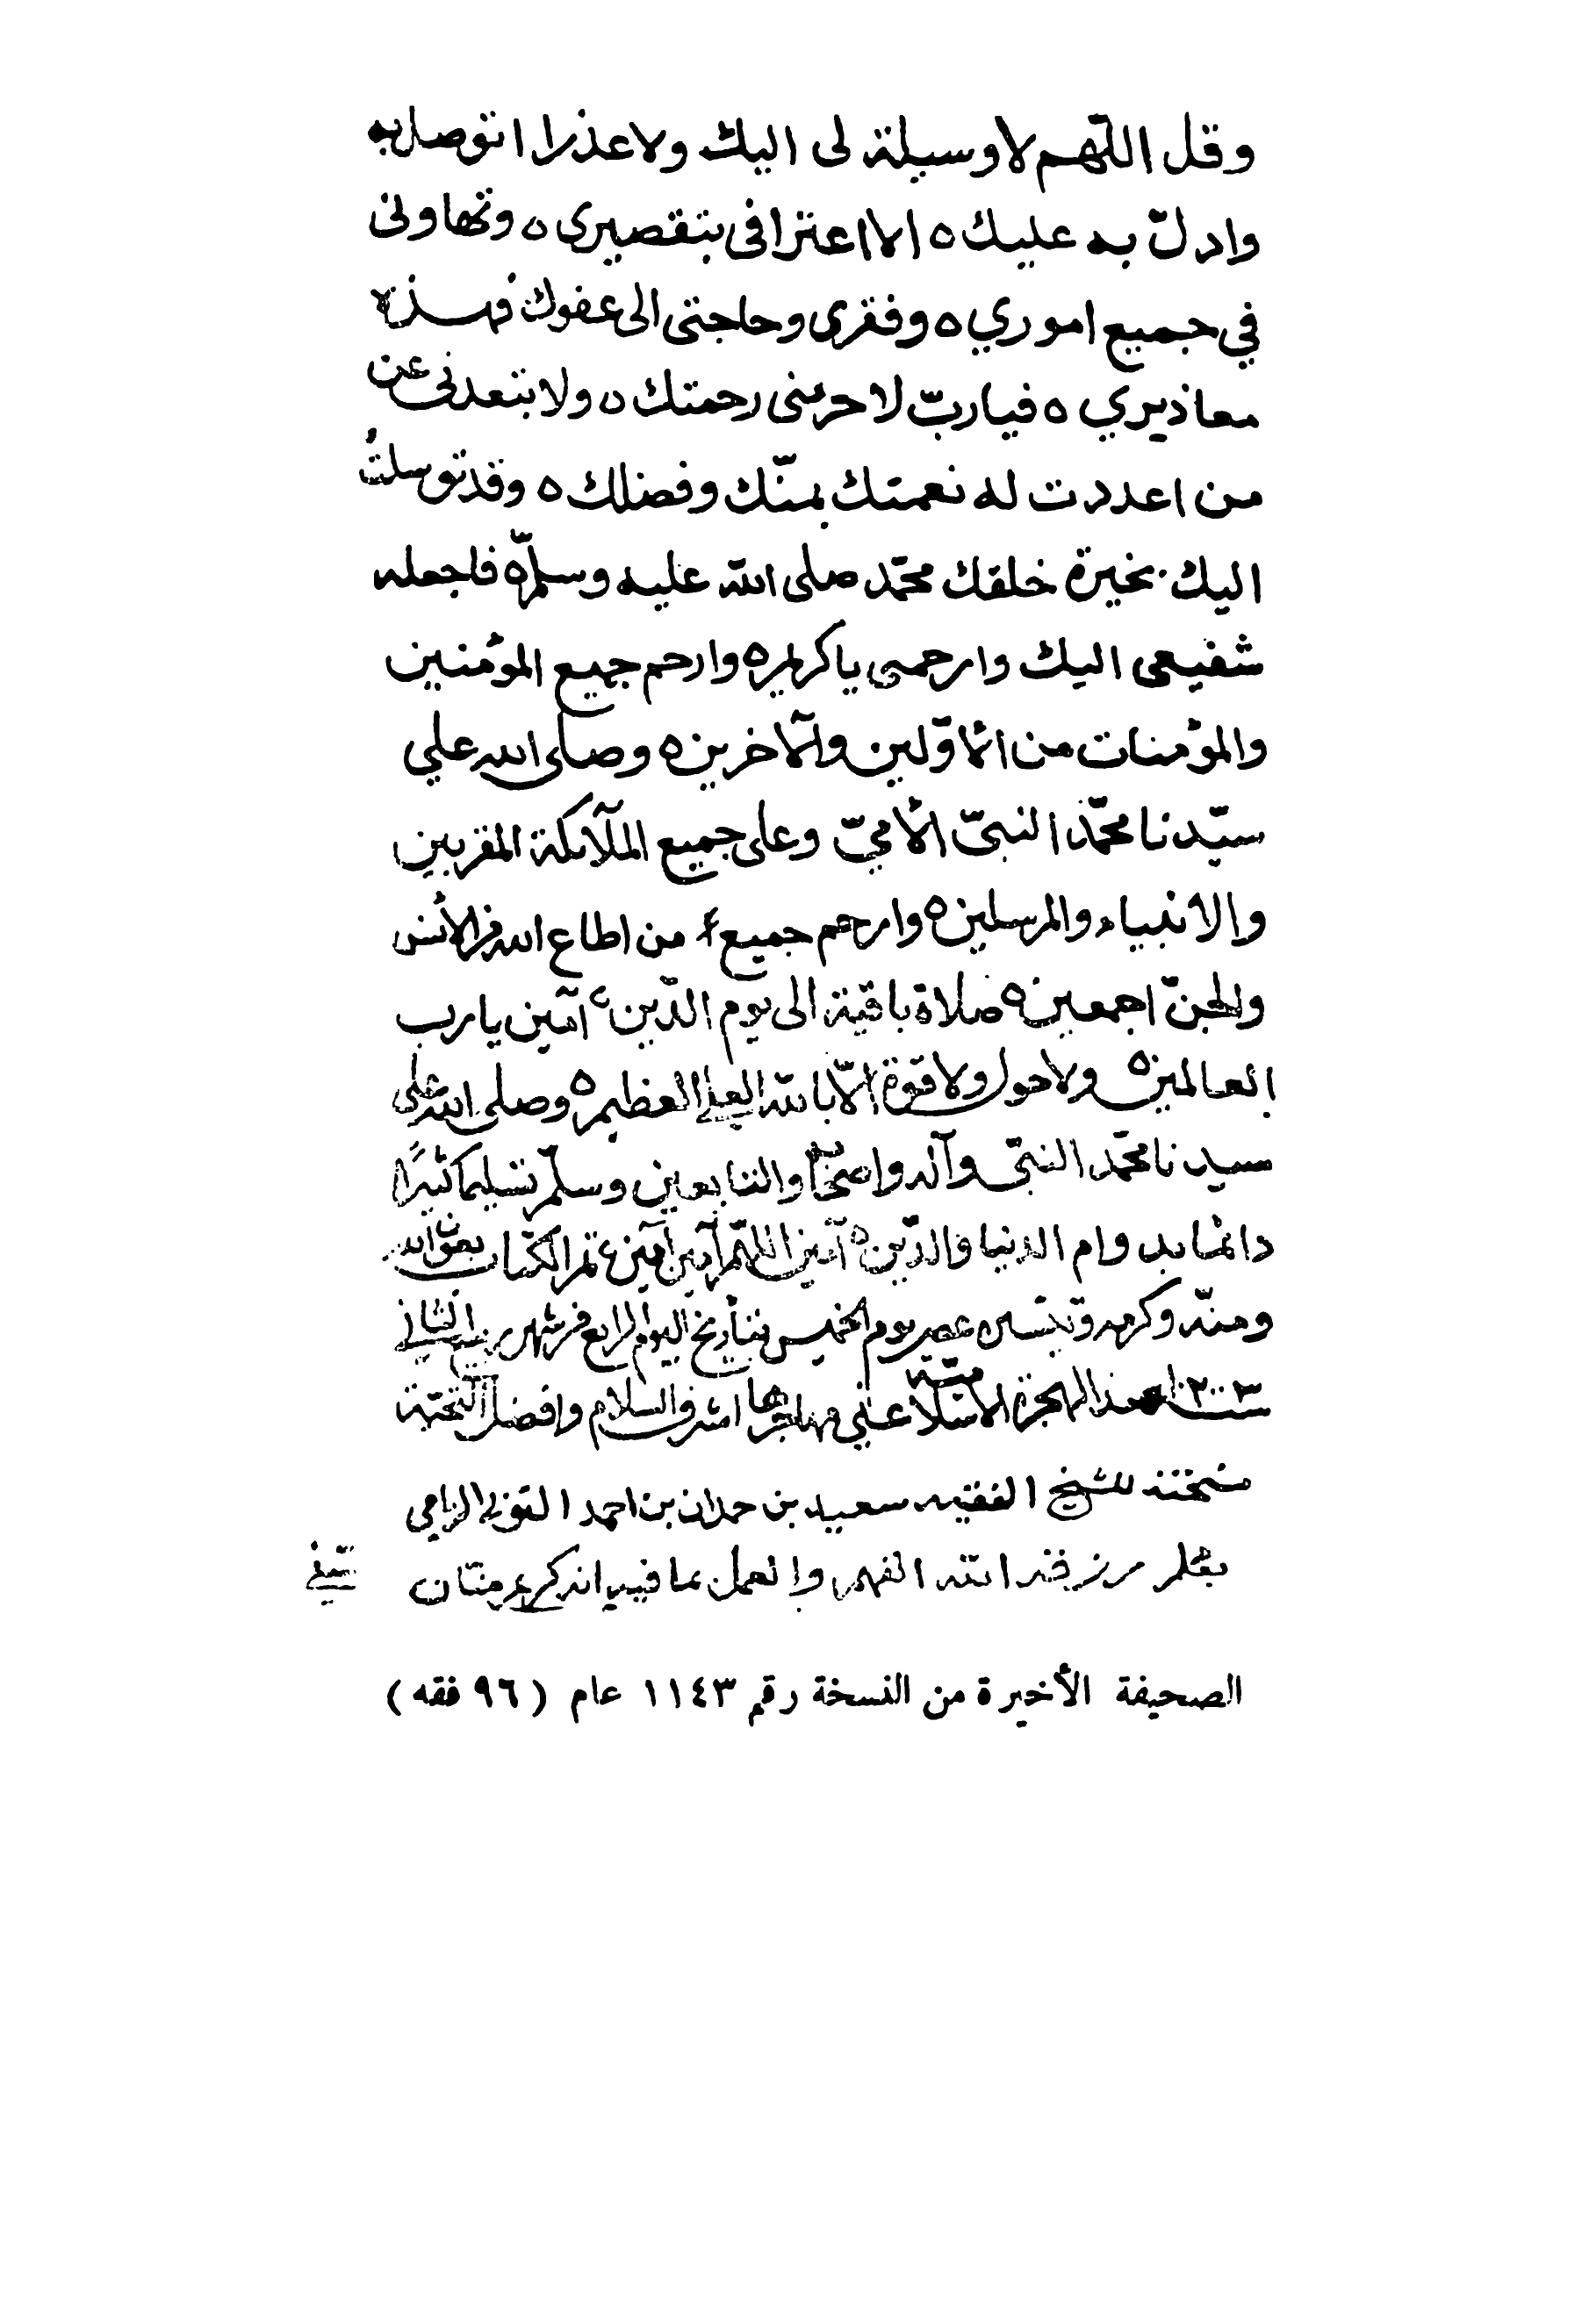 وقل اللّهم لا وسيلة لى اليك ولا عذرا اتوصل به
وادلّ به عليك ه الا اعترافى بتقصيرى ه وتهاونى
في جميع اموري ه وفقرى وحاجتى الى عفوك فهذه
معاذيري ه فيا ربّ لا حرمنى رحمتك ه ولا بتعدنى عن
من اعددت له نعمتك بمنّك وفضلك ه وقد توسلتُ
اليك بخيرة خلقك محمّد صلى الله عليه وسلّم ه فاجعله
شفيعى اليك وارحمى يا كريم ه وارحم جميع المؤمنين
والمؤمنات من الأوّلين والآخرين ه وصلى الله علي
سيّدنا محمّد النبىّ الأميّ وعلى جميع الملآئكة المقربين
والانبياء والمرسلين ه وارحم جميع من اطاع الله من الأنس
والجنّ اجمعين ه صلاة باقية الى يوم الدّين آمين يا رب
العالمين ه ولا حول ولا قوة الّا بالله العلي العظيم ه وصلى الله على
سيدنا محمّد النبىّ وآله واصحابه والتابعين وسلّم تسليما كثيرًا
دائما بدوام الدنيا والدّين ه آمين اللهّم آمين آمين تم الكتاب بعون الله
ومنّه وكرمه وتيسيره عصر يوم الخميس بتأريخ اليوم الرابع من شهر ربيع الثاني
سنة ١٢٠٣ الهجرة الاسلامية على مهاجرها اشرف السلام وافضل التحيّة
نسخته للشيخ الفقيه سعيد بن حمدان بن احمد
رزقه الله الفهم والعمل بما فيه انه كريم منّان
الصحيفة الأخيرة من النسخة رقم ١١٤٣ عام (٩٦ فقه)